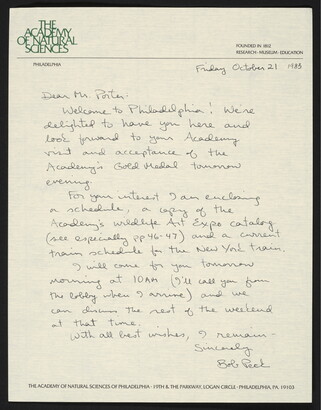 THE
ACADEMY
OF NATURAL
SCIENCES
FOUNDED IN 1812
RESEARCH • MUSEUM • EDUCATION
PHILADELPHIA
Friday October 21 1988
Dear Mr. Porter-
Welcome to Philadelphia! We're
delighted to have you here and
look forward to your Academy
visit and acceptance of the
Academy's Gold Medal tomorrow
evening.
For your interest I am enclosing
a schedule, a copy of the
Academy's Wildlife Art Expo catalog
(see especially pp 46-47) and a current
train schedule for the New York train.
I will come for you tomorrow
morning at 10AM (I'll call you from
the lobby when I arrive) and we
can discuss the rest of the weekend
at that time.
With all best wishes, I remain-
Sincerely
Bob Peck
THE ACADEMY OF NATURAL SCIENCES OF PHILADELPHIA • 19TH & THE PARKWAY, LOGAN CIRCLE • PHILADELPHIA, PA. 19103